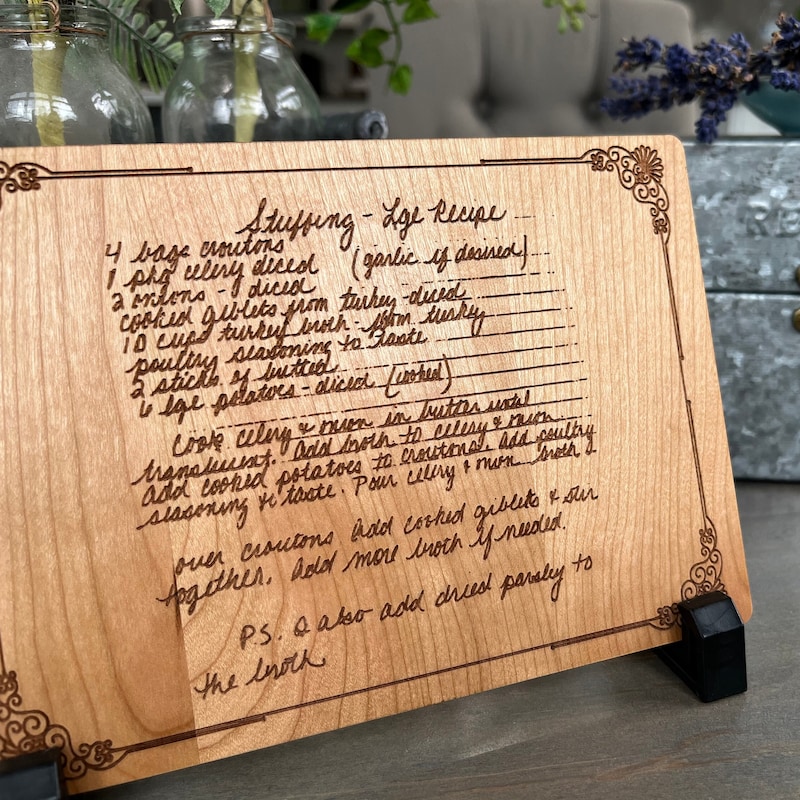 Stuffing - Lge Recipe
4 bags croutons
1 pkg celery diced (garlic if desired)
2 onions - diced
cooked giblets from turkey - diced
10 cups turkey broth - from turkey
poultry seasoning to taste
2 sticks of butter
6 lge potatoes - diced (cooked)
Cook celery & onion in butter until
translucent. Add broth to celery & onion.
Add cooked potatoes to croutons. Add poultry
seasoning to taste. Pour celery & onion broth
over croutons add cooked giblets & stir
together. Add more broth if needed.
P.S. I also add dried parsley to
the broth